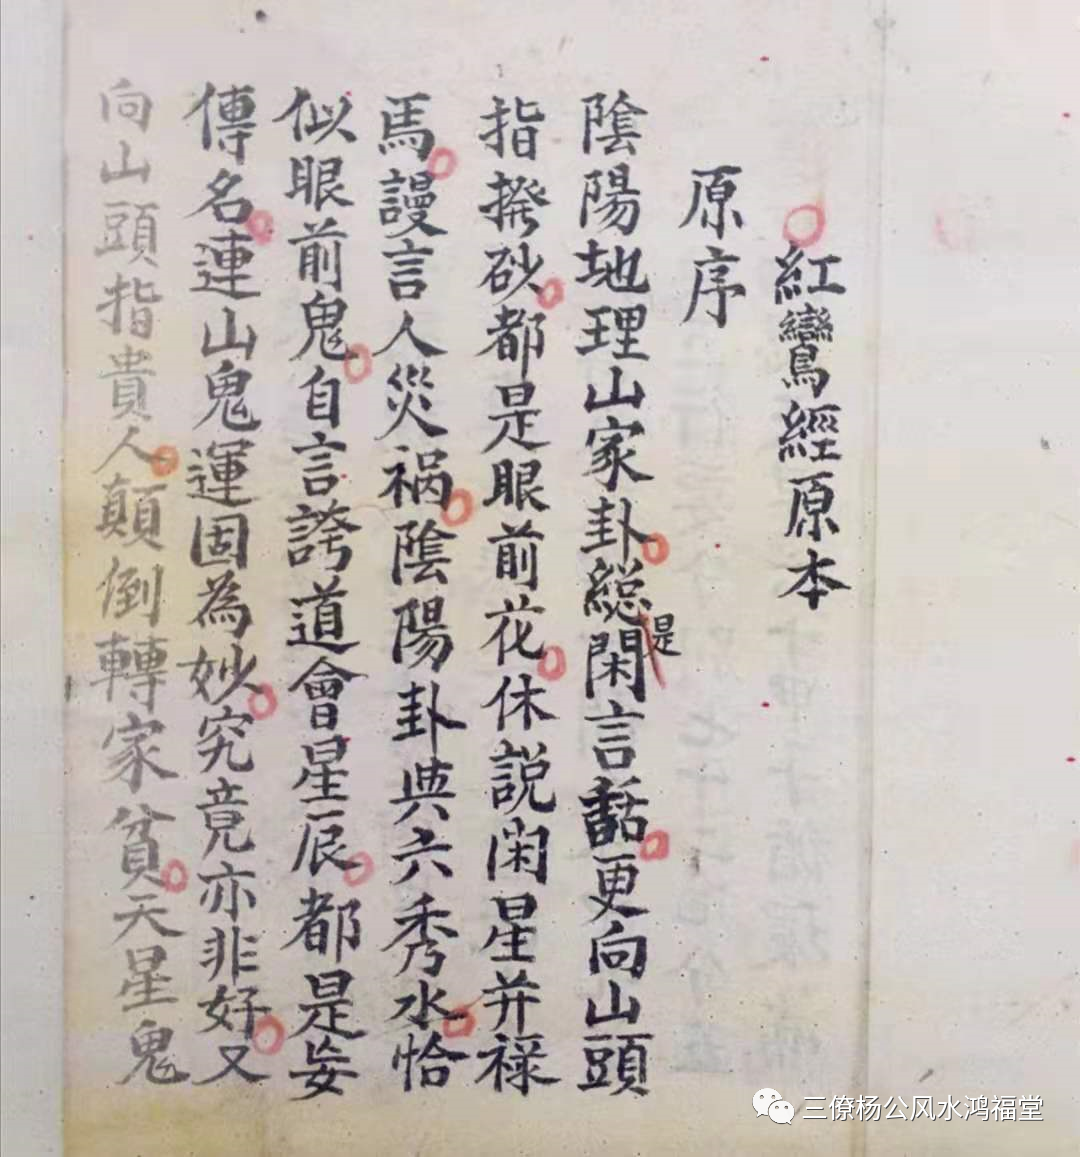 紅鸞經原本
原序
陰陽地理山家卦總是閑言話更向山頭
指撥砂都是眼前花休説閑星并禄
馬謾言人災禍陰陽卦與六秀水恰
似眼前鬼自言誇道會星辰都是妄
傳名連山鬼運固為妙究竟亦非好又
向山頭指貴人顛倒轉家貧天星鬼
三僚杨公风水鸿福堂